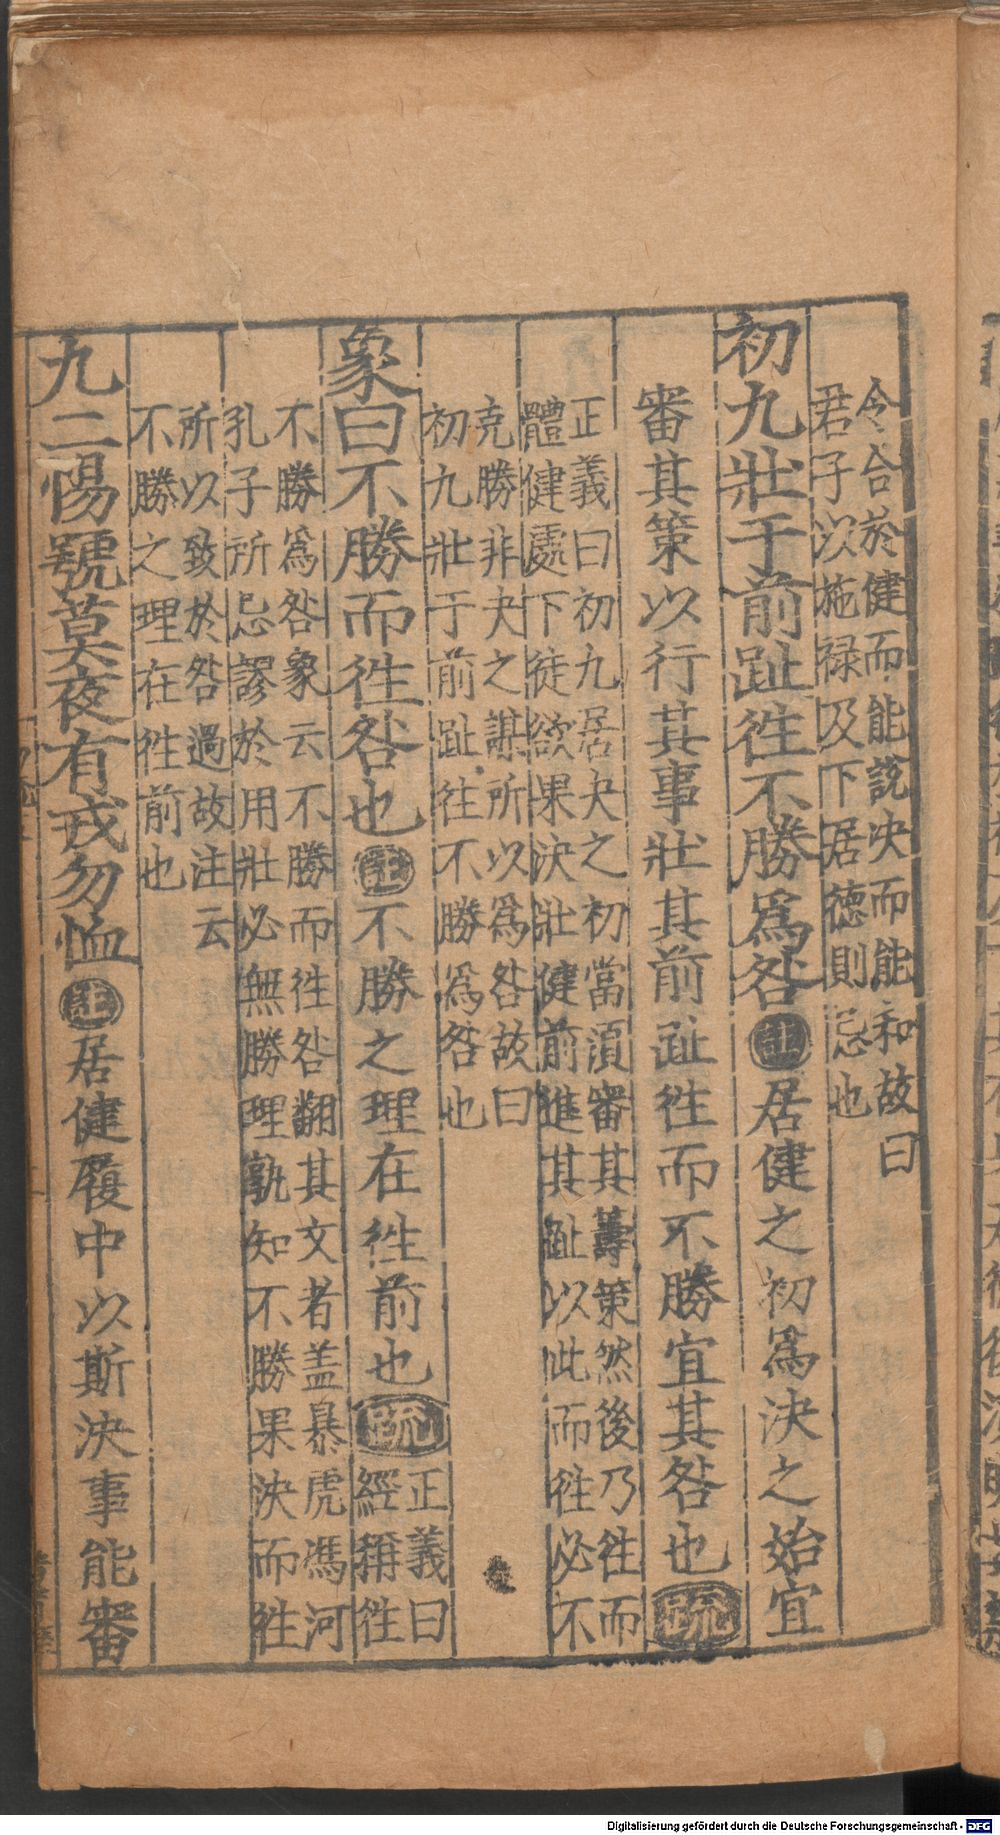 令合於健而能說决而能和故曰
君子以施禄及下居德則忌也
初九壯于前趾徃不勝爲咎 註 居健之初爲決之始宜
審其策以行其事壯其前趾徃而不勝宜其咎也 疏
正義曰初九居夬之初當湏審其籌策然後乃徃而
體健處下徒欲果決壯健前進其趾以此而徃必不
克勝非夬之謀所以爲咎故曰
初九壯于前趾徃不勝爲咎也
象曰不勝而徃咎也 註 不勝之理在徃前也 疏
正義曰
經稱徃
不勝爲咎象云不勝而徃咎翻其文者盖暴虎馮河
孔子所忌謬於用壯必無勝理孰知不勝果決而徃
所以致於咎過故注云
不勝之理在徃前也
九二惕號莫夜有戎勿恤 註 居健履中以斯決事能審
Digitalisierung gefördert durch die Deutsche Forschungsgemeinschaft - DFG